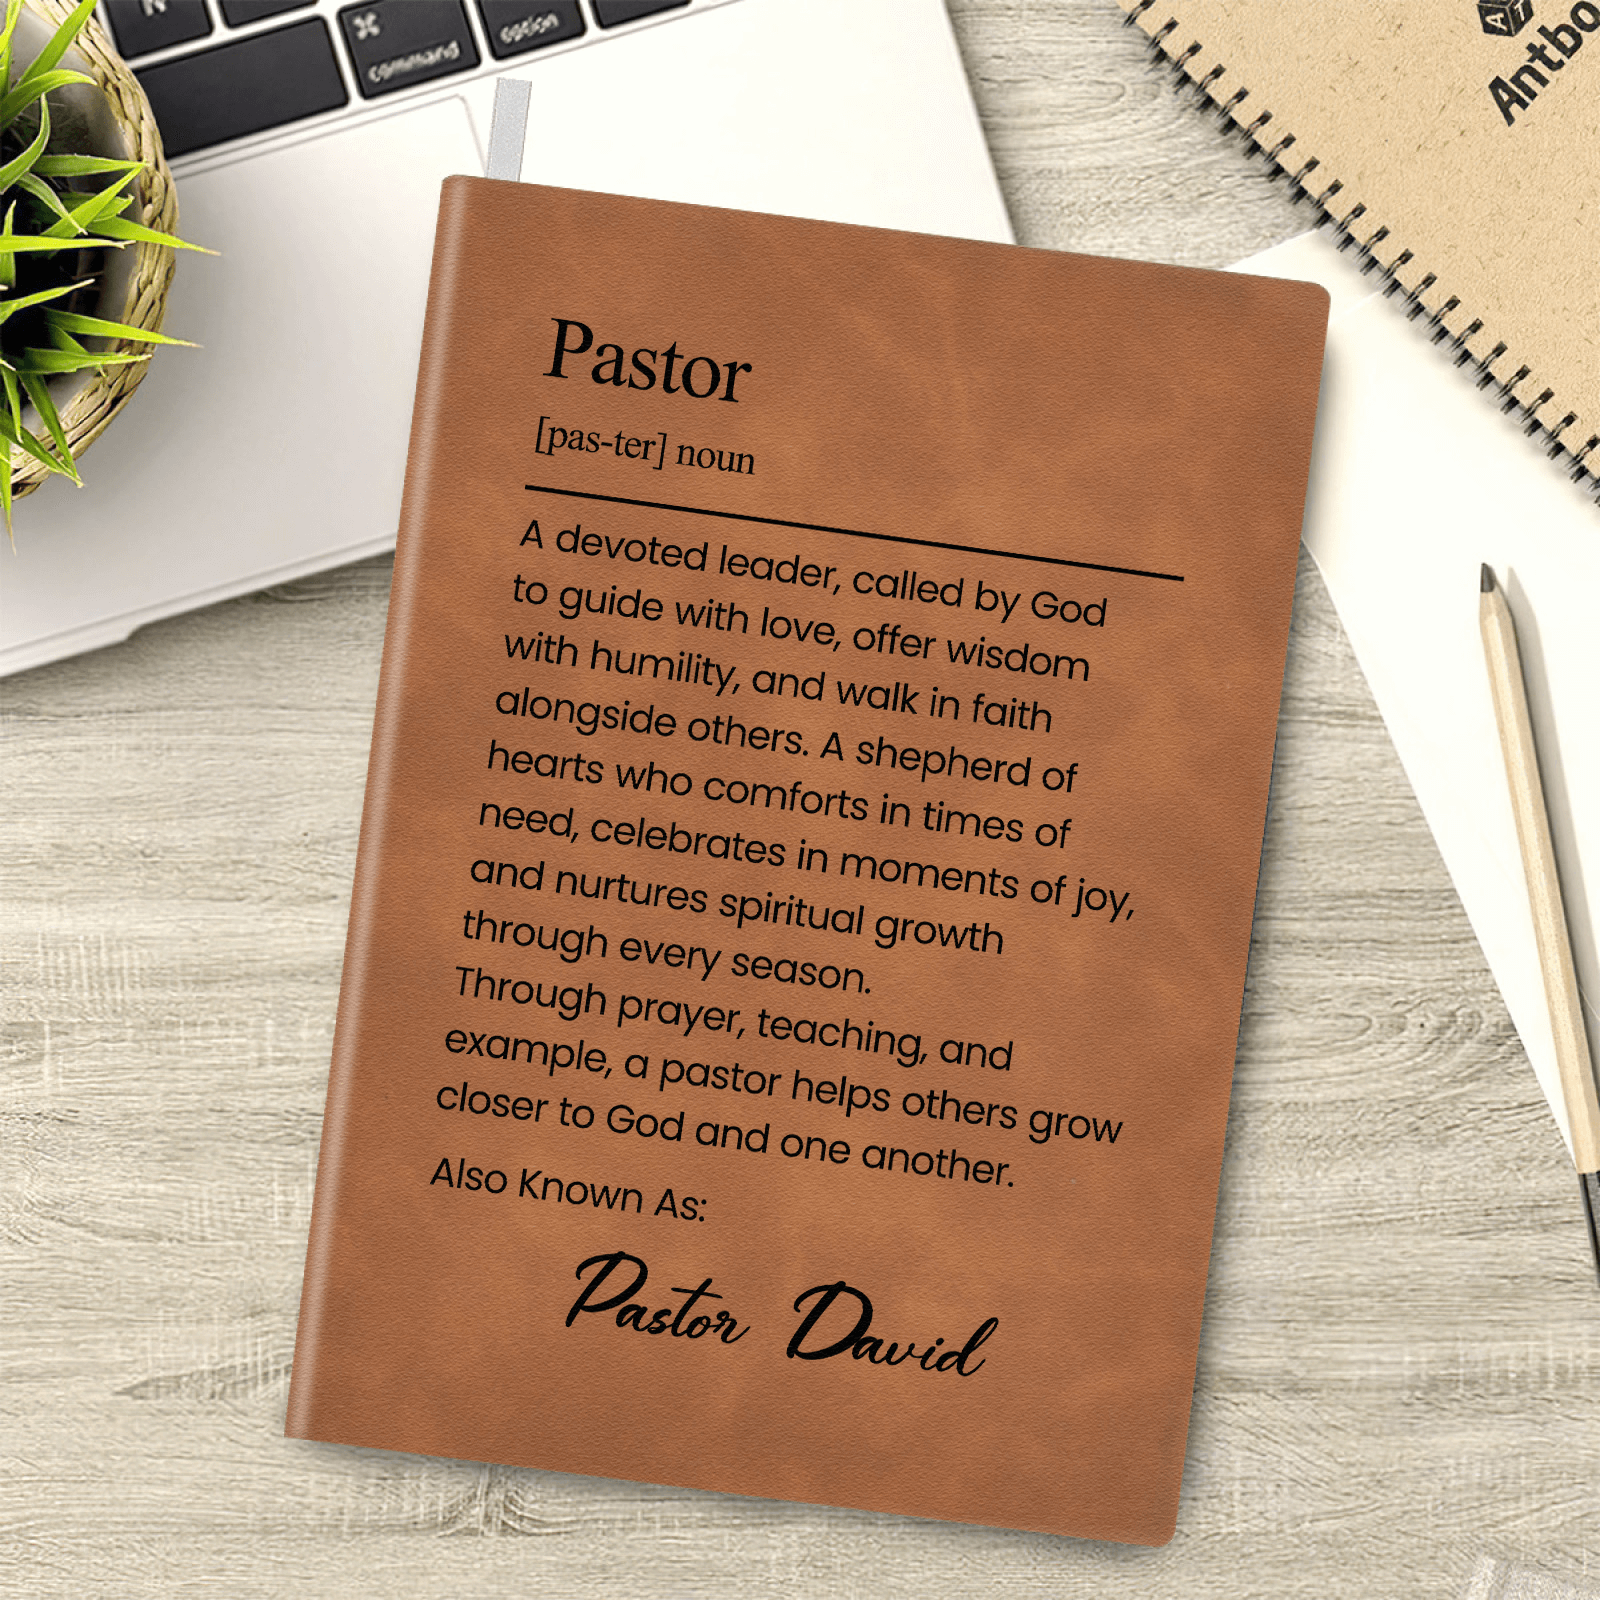 N
⌘
command
option
Antbo
Pastor
[pas-ter] noun
A devoted leader, called by God
to guide with love, offer wisdom
with humility, and walk in faith
alongside others. A shepherd of
hearts who comforts in times of
need, celebrates in moments of joy,
and nurtures spiritual growth
through every season.
Through prayer, teaching, and
example, a pastor helps others grow
closer to God and one another.
Also Known As:
Pastor David